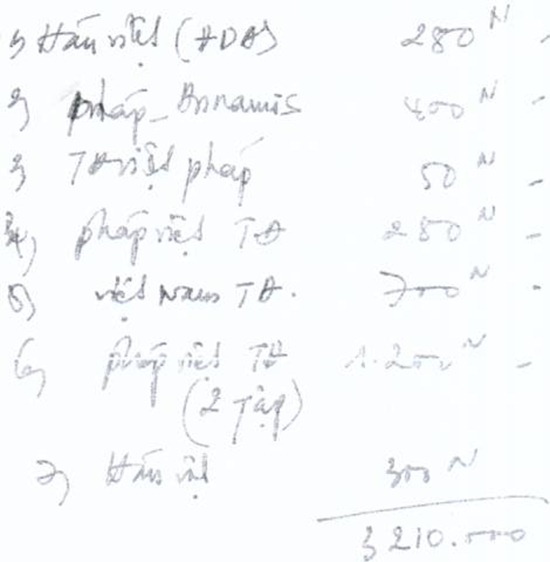 1) Hán việt (ĐDA) 280N -
2) pháp - Annamis 400N -
3) TĐ việt pháp 50N -
4) pháp việt TĐ 280N -
5) việt Nam TĐ. 700N -
6) pháp việt TĐ 1.200N -
(2 Tập)
7) Hán việt 300N
3210.000